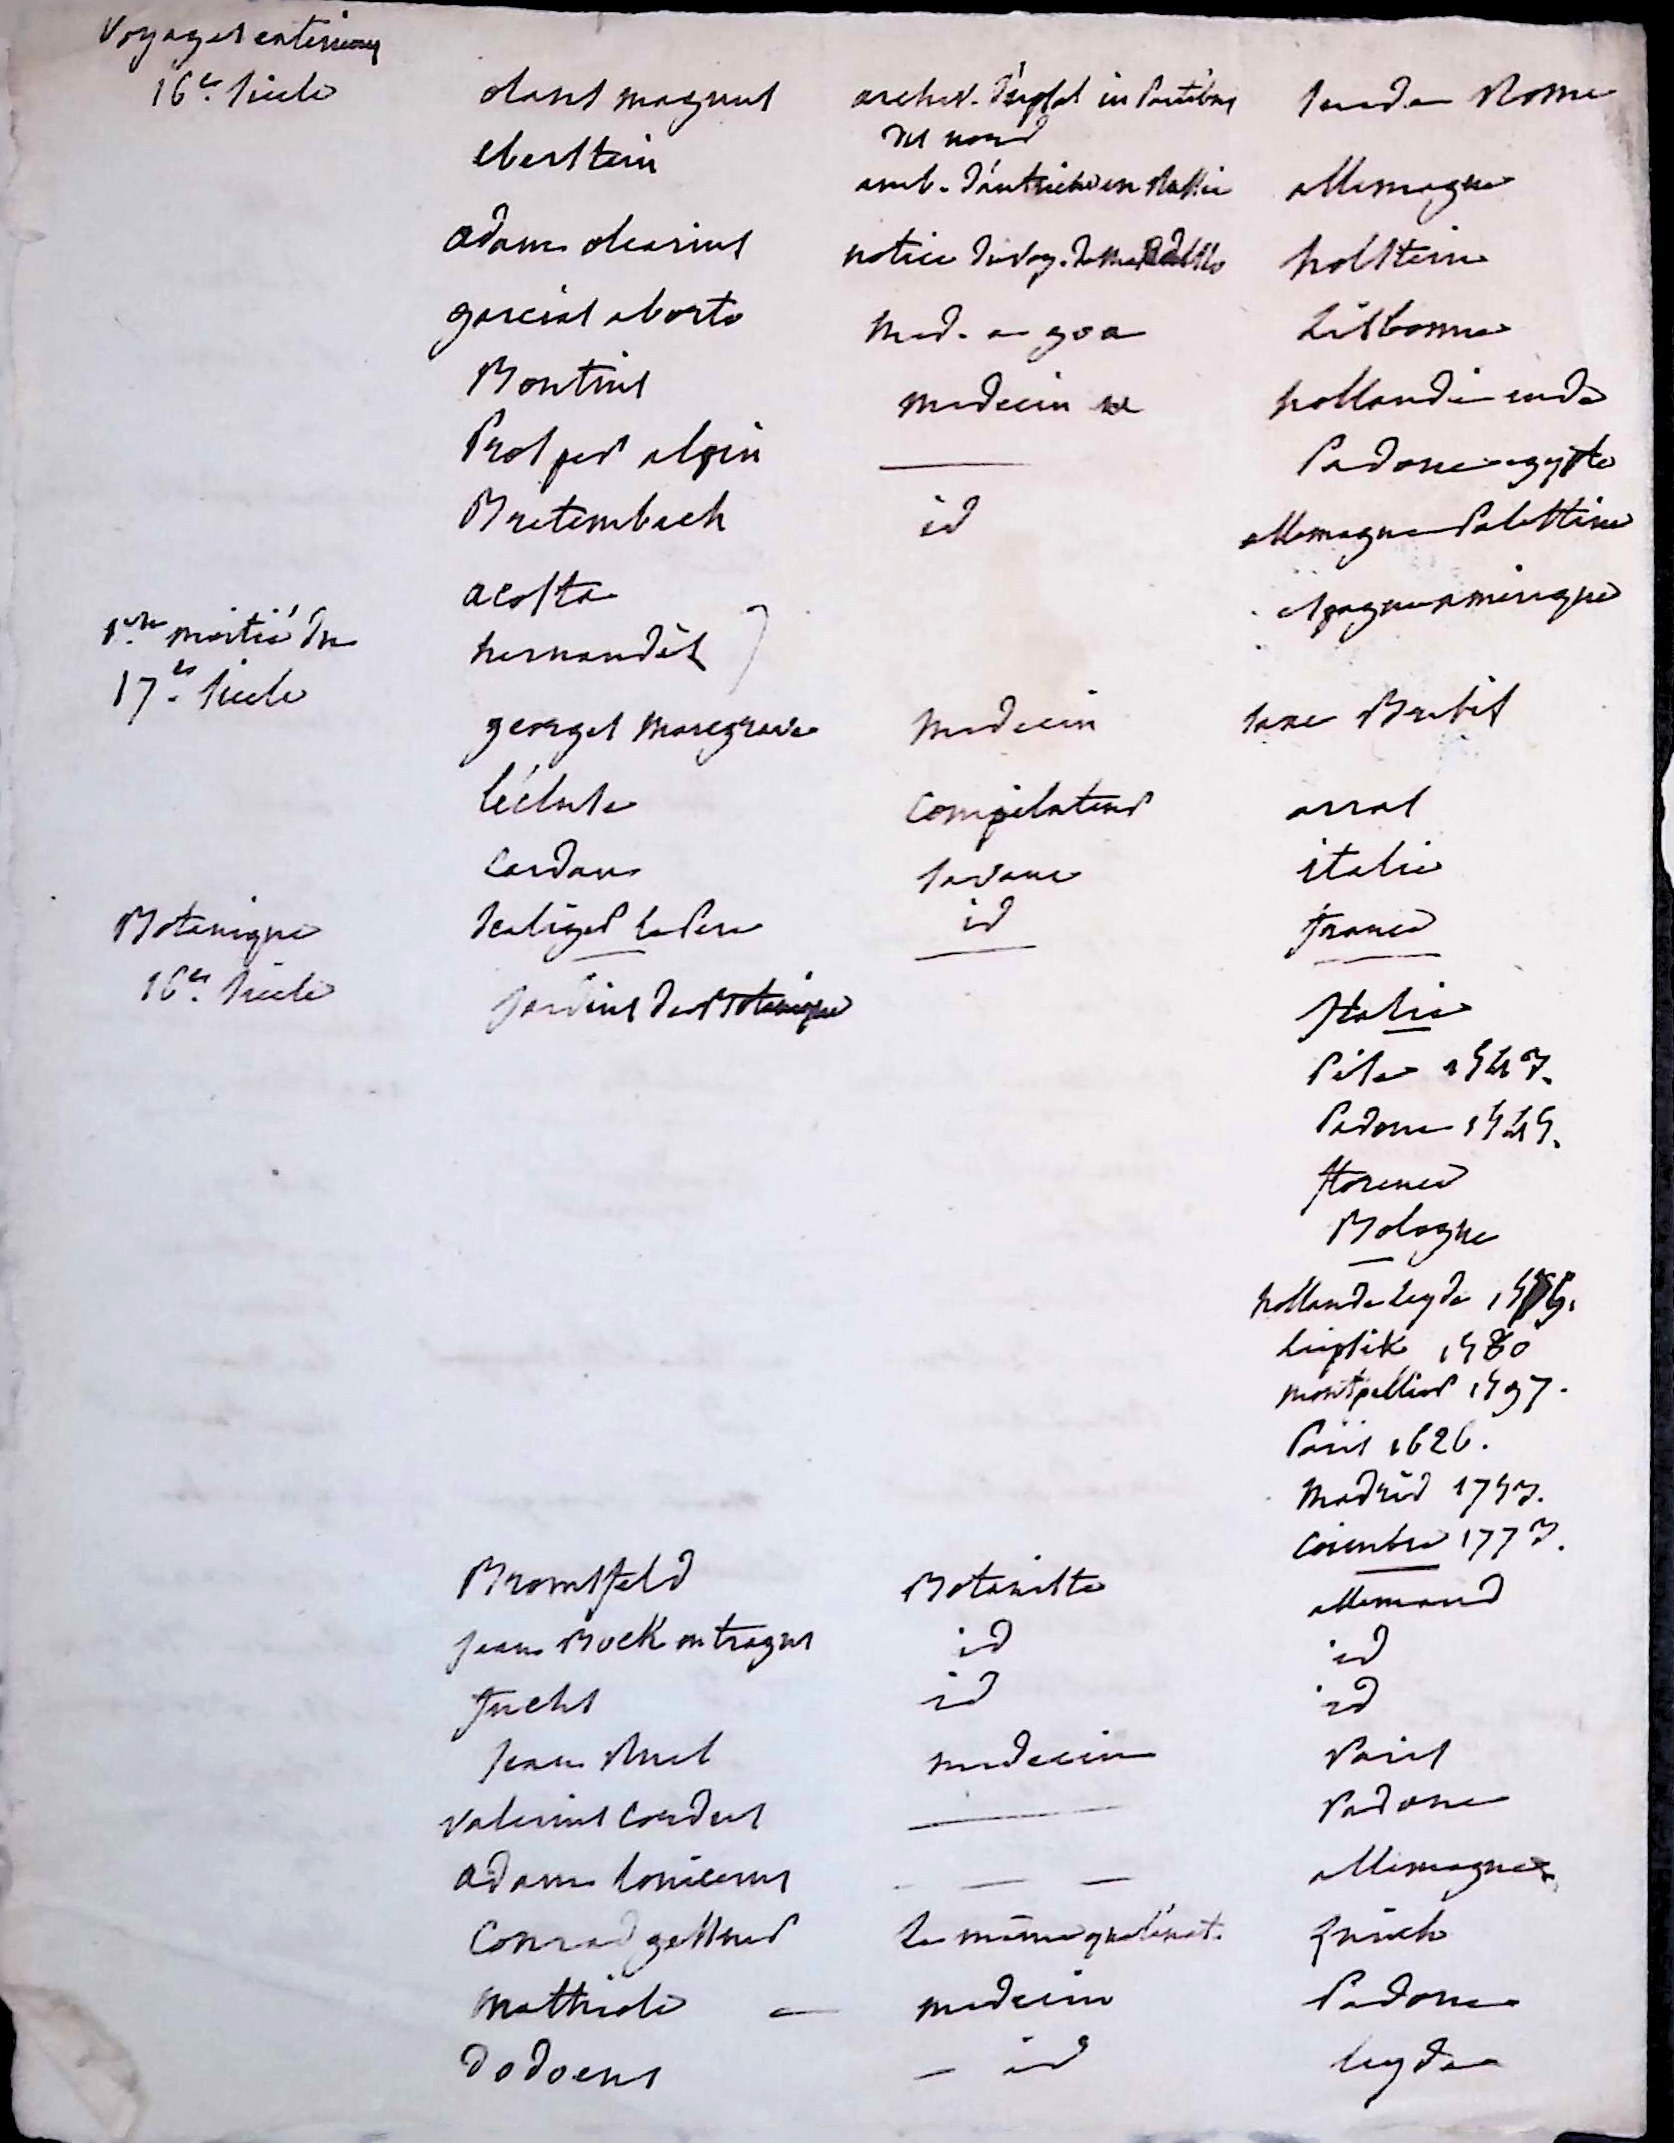 Voyages exterieurs
16e. siecle olaus magnus archev. d'upsal in partibus suede Rome
des nord
eberstein amb. d'autriche en Russie allemagne
adam olearius notice du voy. de holstein
garcias aborto med. a goa Lisbonne
Bontius medecin hollande inde
Prosper alpin — Padoue egypte
Bretembach id allemagne Palestine
acosta espagne amerique
1ere moitié du hernandès
17e. siecle
georges marcgrave medecin saxe Bresil
l'écluse compilateur arras
cardan savant italie
Botanique scaliger le pere id france
16e. siecle jardins de Botanique Italie
Pise 1543.
Padoue 1545.
florence
Bologne
hollande leyde
leipsik 1580
montpellier 1597.
Paris 1626.
Madrid 1753.
Coimbre 1773.
Bromsfeld Botaniste allemand
jean Bock ou tragus id id
fuchs id id
jean Ruel medecin Paris
valerius cordus — Padoue
adam lonicerus — — allemagne
Conrad gessner le même que l'nat. zurich
Mathiole — medecin Padoue
Dodoens — id leyde